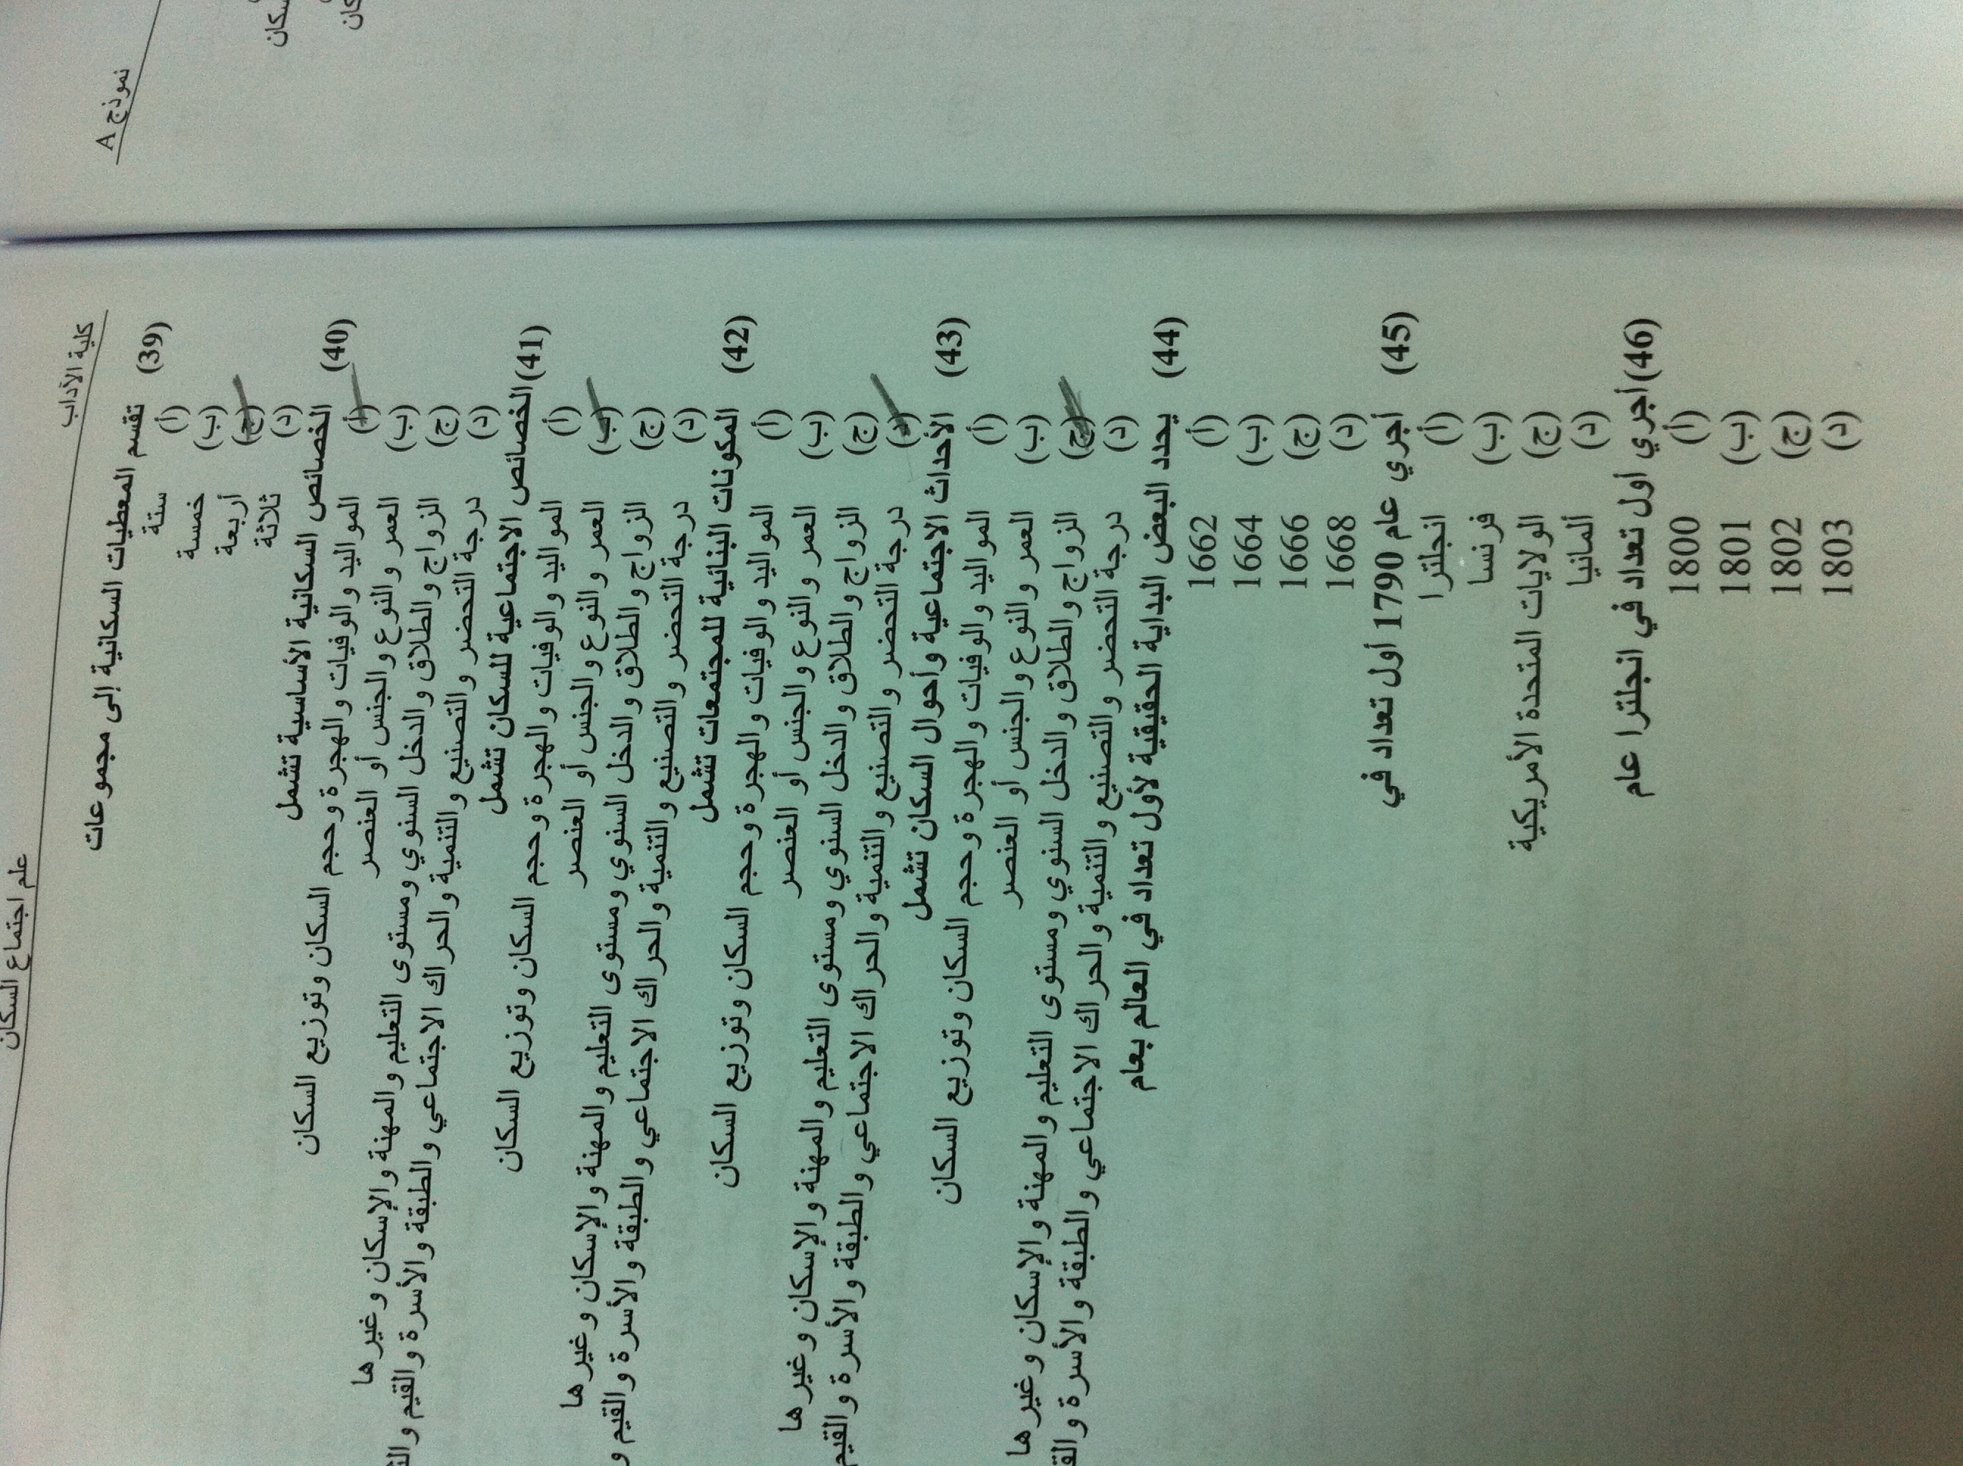 نموذج A
سكان
كان
علم اجتماع السكان
كلية الآداب
(39) تقسم المعطيات السكانية إلى مجموعات
(أ) ستة
(ب) خمسة
(ج) أربعة
(د) ثلاثة
(40) الخصائص السكانية الأساسية تشمل
(أ) المواليد والوفيات والهجرة وحجم السكان وتوزيع السكان
(ب) العمر والنوع والجنس أو العنصر
(ج) الزواج والطلاق والدخل السنوي ومستوى التعليم والمهنة والإسكان وغيرها
(د) درجة التحضر والتصنيع والتنمية والحراك الاجتماعي والطبقة والأسرة والقيم
(41) الخصائص الاجتماعية للسكان تشمل
(أ) المواليد والوفيات والهجرة وحجم السكان وتوزيع السكان
(ب) العمر والنوع والجنس أو العنصر
(ج) الزواج والطلاق والدخل السنوي ومستوى التعليم والمهنة والإسكان وغيرها
(د) درجة التحضر والتصنيع والتنمية والحراك الاجتماعي والطبقة والأسرة والقيم و
(42) المكونات البنائية للمجتمعات تشمل
(أ) المواليد والوفيات والهجرة وحجم السكان وتوزيع السكان
(ب) العمر والنوع والجنس أو العنصر
(ج) الزواج والطلاق والدخل السنوي ومستوى التعليم والمهنة والإسكان وغيرها
(د) درجة التحضر والتصنيع والتنمية والحراك الاجتماعي والطبقة والأسرة والقيم
(43) الأحداث الاجتماعية وأحوال السكان تشمل
(أ) المواليد والوفيات والهجرة وحجم السكان وتوزيع السكان
(ب) العمر والنوع والجنس أو العنصر
(ج) الزواج والطلاق والدخل السنوي ومستوى التعليم والمهنة والإسكان وغيرها
(د) درجة التحضر والتصنيع والتنمية والحراك الاجتماعي والطبقة والأسرة والق
(44) يحدد البعض البداية الحقيقية لأول تعداد في العالم بعام
(أ) 1662
(ب) 1664
(ج) 1666
(د) 1668
(45) أجري عام 1790 أول تعداد في
(أ) انجلترا
(ب) فرنسا
(ج) الولايات المتحدة الأمريكية
(د) ألمانيا
(46) أجري أول تعداد في انجلترا عام
(أ) 1800
(ب) 1801
(ج) 1802
(د) 1803